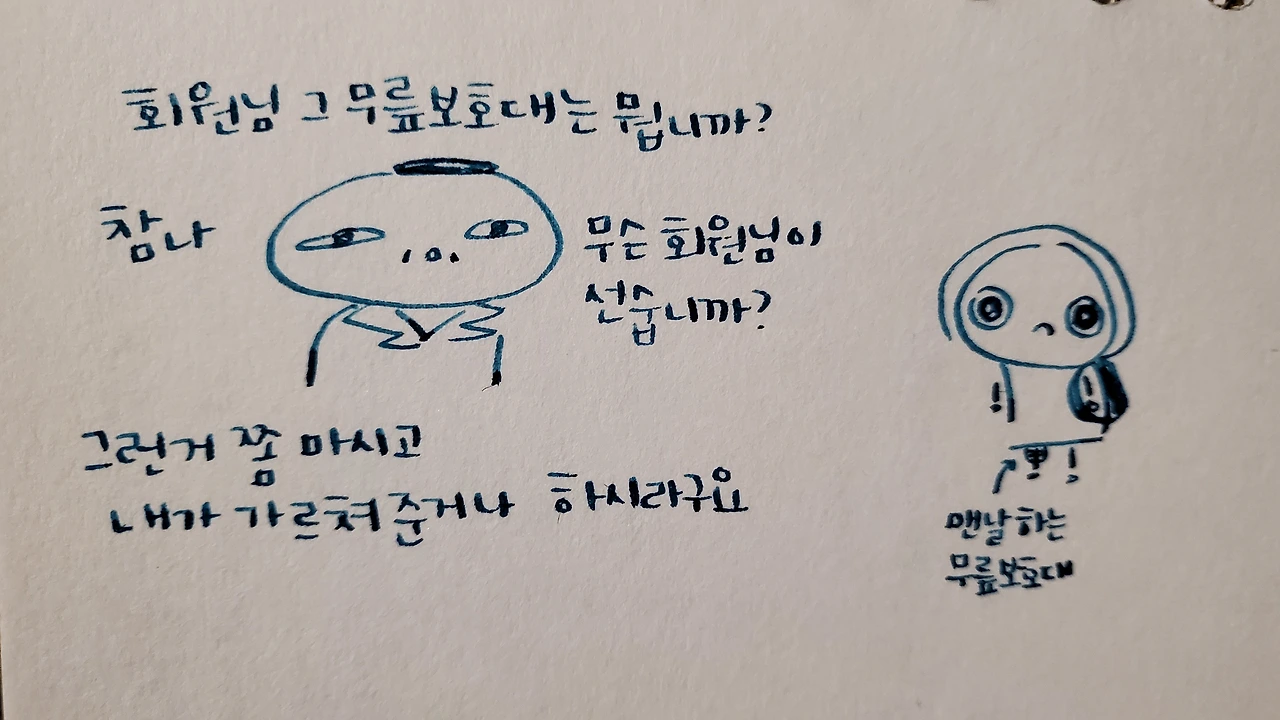 회원님 그 무릎보호대는 뭡니까?
참나
무슨 회원님이
선숩니까?
그런거 쫌 마시고
내가 가르쳐 준거나 하시라구요
맨날 하는
무릎보호대